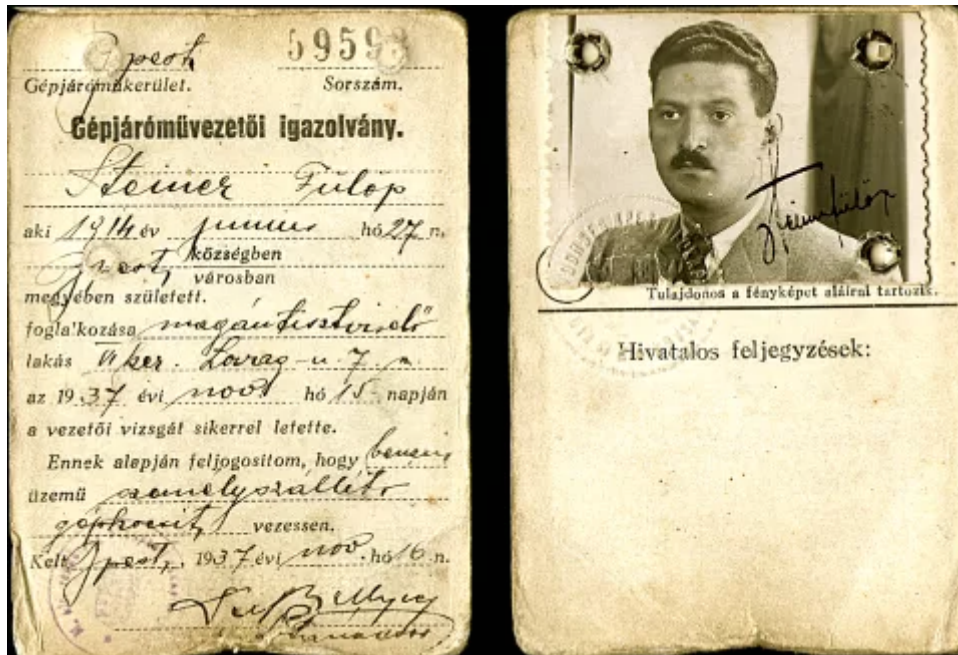 Bpest
5959
Gépjárómúkerület. Sorszám.
Gépjáróművezetői igazolvány.
Steiner Fülöp
aki 1914 év junius hó 27 n.
Bpest községben
városban
megyében született.
foglalkozása magántisztviselő
lakás VI ker. Lovag-u. 7 sz.
az 1937 évi nov hó 15 napján
a vezetői vizsgát sikerrel letette.
Ennek alapján feljogosítom, hogy benzin
üzemű személyszállító
gépkocsit vezessen.
Kelt Bpest, 1937 évi nov. hó 16 n.
Steiner Fülöp
Tulajdonos a fényképet aláírni tartozik.
Hivatalos feljegyzések: